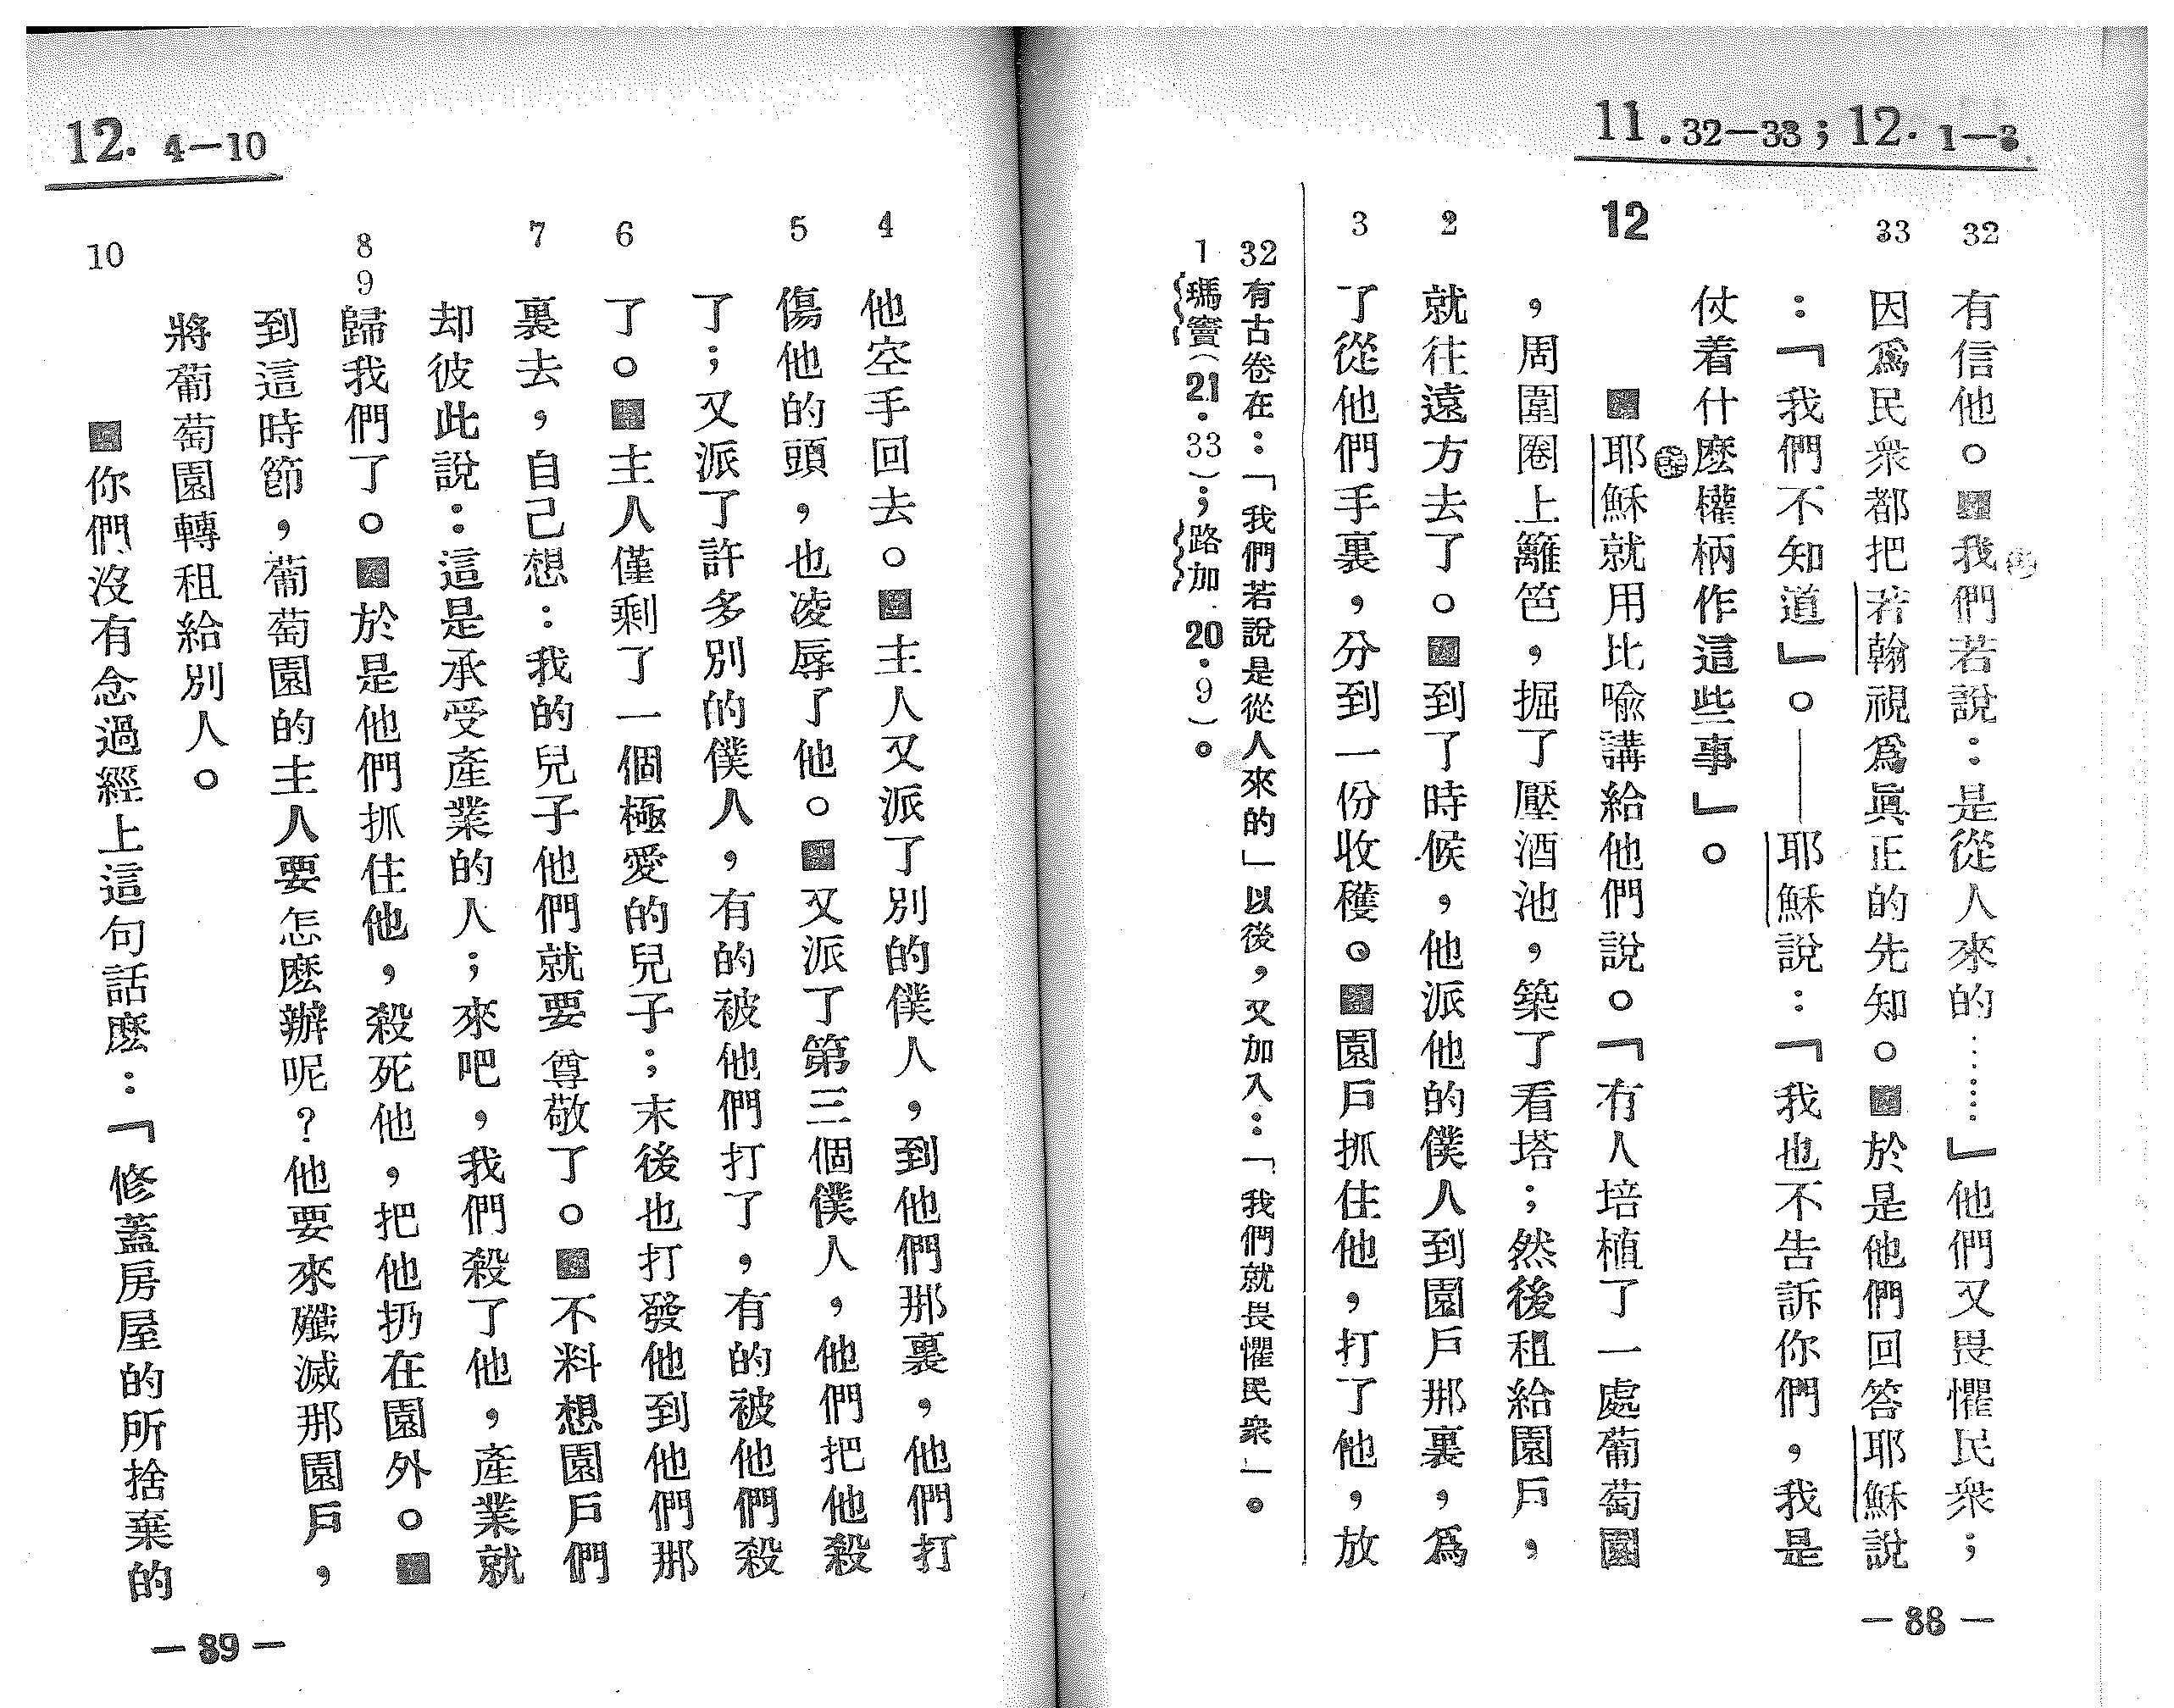 11.32—33；12.1—3
32
有信他。我們若說：是從人來的……」他們又畏懼民衆；
33
因爲民衆都把若翰視爲眞正的先知。於是他們回答耶穌說
：「我們不知道」。——耶穌說：「我也不告訴你們，我是
仗着什麽權柄作這些事」。
12
耶穌就用比喩講給他們說。「有人培植了一處葡萄園
，周圍圈上籬笆，掘了壓酒池，築了看塔；然後租給園戶，
2
就往遠方去了。到了時候，他派他的僕人到園戶那裏，爲
3
了從他們手裏，分到一份收穫。園戶抓住他，打了他，放
32 有古卷在：「我們若說是從人來的」以後，又加入：「我們就畏懼民衆」。
1 瑪竇（21.33）；路加20.9）。
—88—
12. 4—10
4
他空手回去。主人又派了別的僕人，到他們那裏，他們打
5
傷他的頭，也凌辱了他。又派了第三個僕人，他們把他殺
了；又派了許多別的僕人，有的被他們打了，有的被他們殺
6
了。主人僅剩了一個極愛的兒子；末後也打發他到他們那
7
裏去，自己想：我的兒子他們就要尊敬了。不料想園戶們
却彼此說：這是承受產業的人；來吧，我們殺了他，產業就
8
9
歸我們了。於是他們抓住他，殺死他，把他扔在園外。
到這時節，葡萄園的主人要怎麽辦呢？他要來殲滅那園戶，
將葡萄園轉租給別人。
10
你們沒有念過經上這句話麽：「修蓋房屋的所捨棄的
—89—